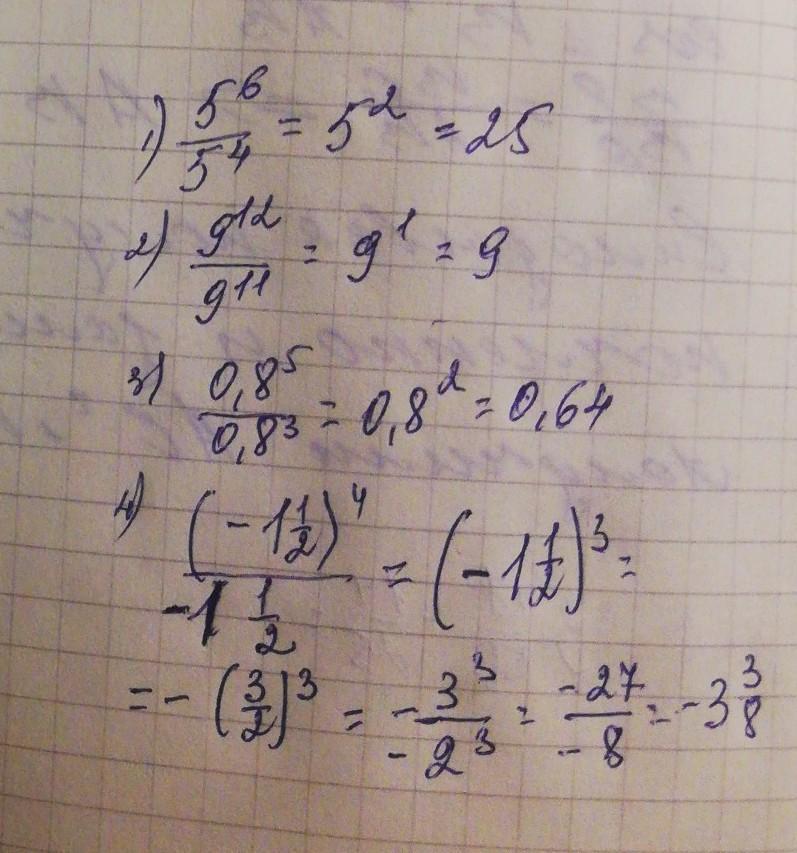 1) 5^6 / 5^4 = 5^2 = 25
2) 9^12 / 9^11 = 9^1 = 9
3) 0,8^5 / 0,8^3 = 0,8^2 = 0,64
4) (-1 1/2)^4 / -1 1/2 = (-1 1/2)^3 =
= - (3/2)^3 = -3^3 / -2^3 = -27 / -8 = -3 3/8